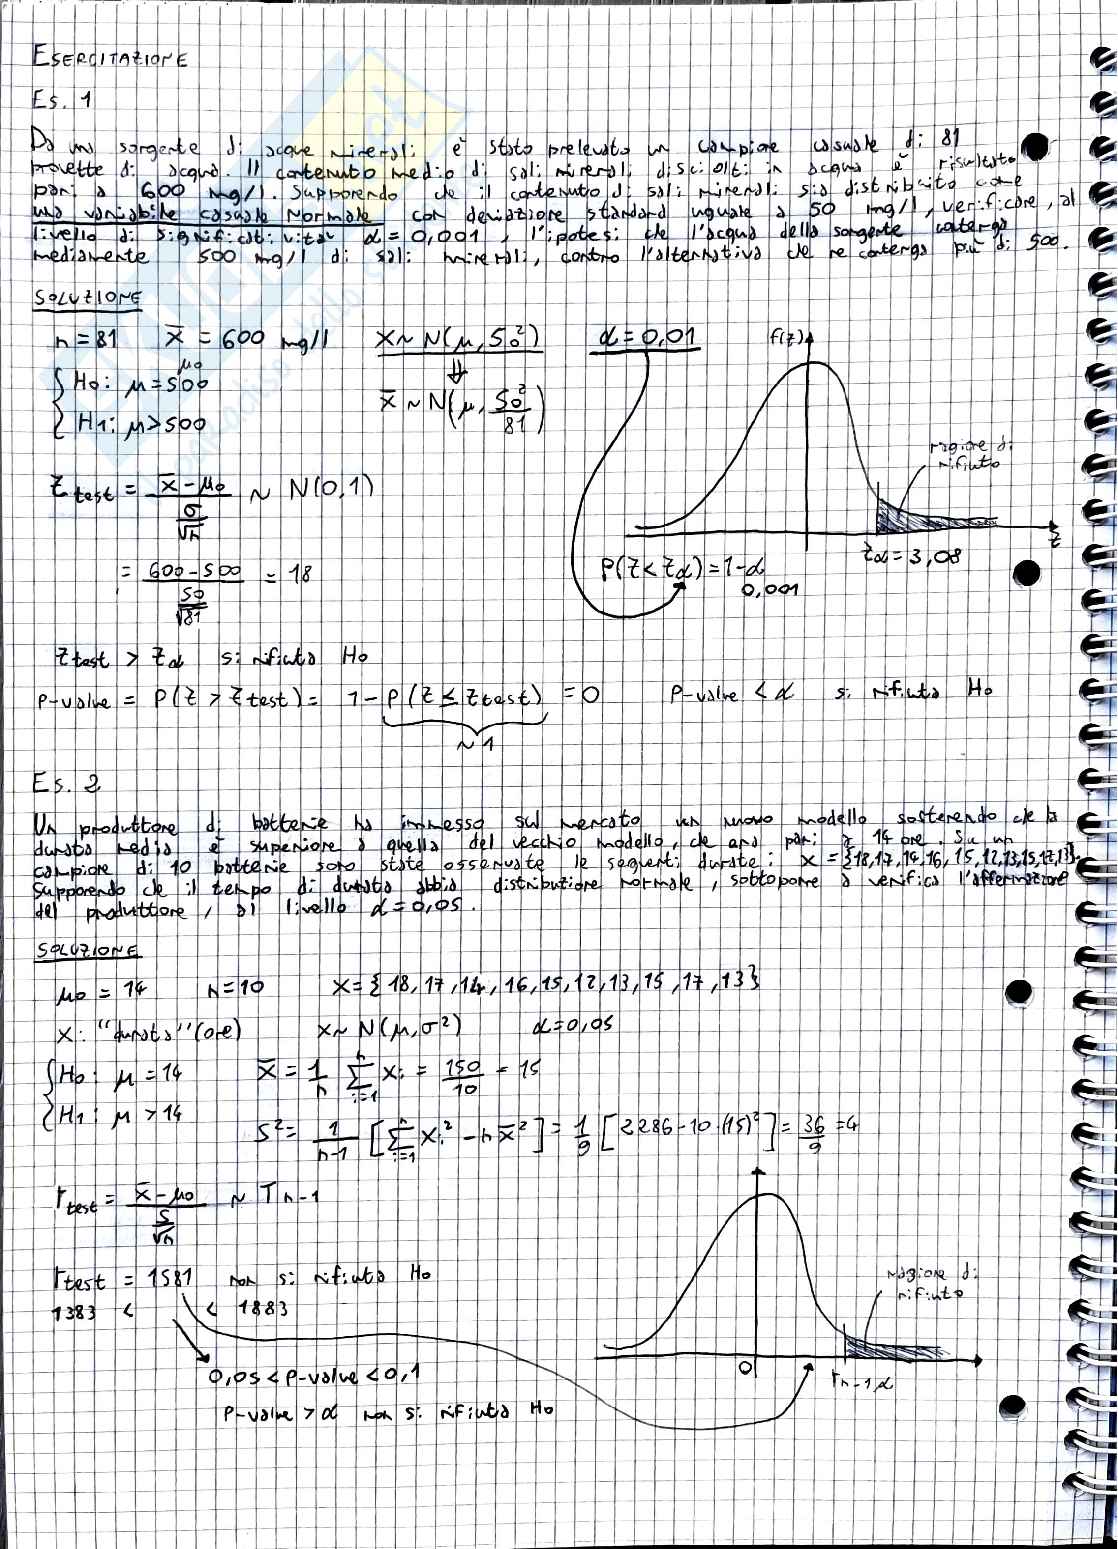 ESERCITAZIONE
Es. 1
Da una sorgente di acque minerali è stato prelevato un campione casuale di 81
provette di acqua. Il contenuto medio di sali minerali disciolti in acqua è risultato
pari a 600 mg/l. Supponendo che il contenuto di sali minerali sia distribuito come
una variabile casuale Normale con deviazione standard uguale a 50 mg/l, verificare, al
livello di significatività α = 0,001, l'ipotesi che l'acqua della sorgente contenga
mediamente 500 mg/l di sali minerali, contro l'alternativa che ne contenga più di 500.
SOLUZIONE
n = 81 x̄ = 600 mg/l X ~ N(μ, 50²) α = 0,01 f(z)
μ0
{ H0: μ = 500
⇓
{ H1: μ > 500 x̄ ~ N(μ, 50²/81)
regione di
rifiuto
Z test = (x̄ - μ0) / (σ/√n) ~ N(0,1)
zα = 3,08 z
= (600 - 500) / (50/√81) = 18 P(Z < zα) = 1 - α
0,001
Z test > Zα si rifiuta H0
P-value = P(Z > Z test) = 1 - P(Z ≤ Z test) = 0 P-value < α si rifiuta H0
~ 1
Es. 2
Un produttore di batterie ha immesso sul mercato un nuovo modello sostenendo che la
durata media è superiore a quella del vecchio modello, che era pari a 14 ore. Su un
campione di 10 batterie sono state osservate le seguenti durate: x = {18,17,14,16,15,12,13,15,17,13}.
Supponendo che il tempo di durata abbia distribuzione normale, sottoporre a verifica l'affermazione
del produttore, al livello α = 0,05.
SOLUZIONE
μ0 = 14 n = 10 X = { 18, 17, 14, 16, 15, 12, 13, 15, 17, 13}
X: "durata" (ore) X ~ N(μ, σ²) α = 0,05
{ H0: μ = 14 x̄ = 1/n Σ i=1 n xi = 150/10 = 15
{ H1: μ > 14
S² = 1/(n-1) [Σ i=1 n xi² - n x̄²] = 1/9 [2286 - 10·(15)²] = 36/9 = 4
t test = (x̄ - μ0) / (S/√n) ~ T n-1
t test = 1581 non si rifiuta H0
regione di
rifiuto
1383 < < 1883
0 t n-1,α
0,05 < P-value < 0,1
P-value > α non si rifiuta H0